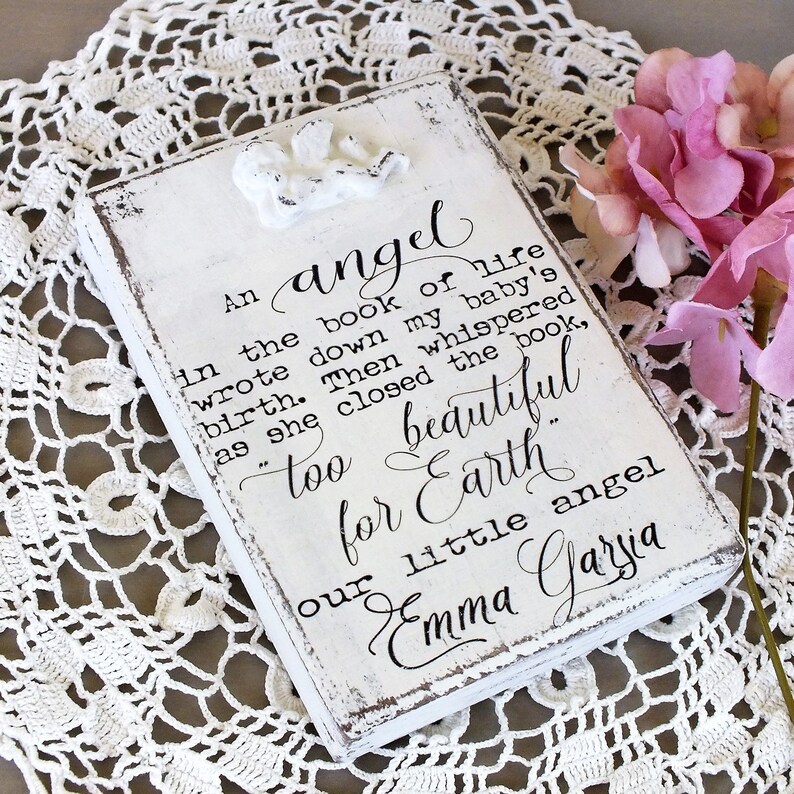 An angel
in the book of life
wrote down my baby's
birth. Then whispered
as she closed the book,
"too beautiful
for Earth"
our little angel
Emma Garsia